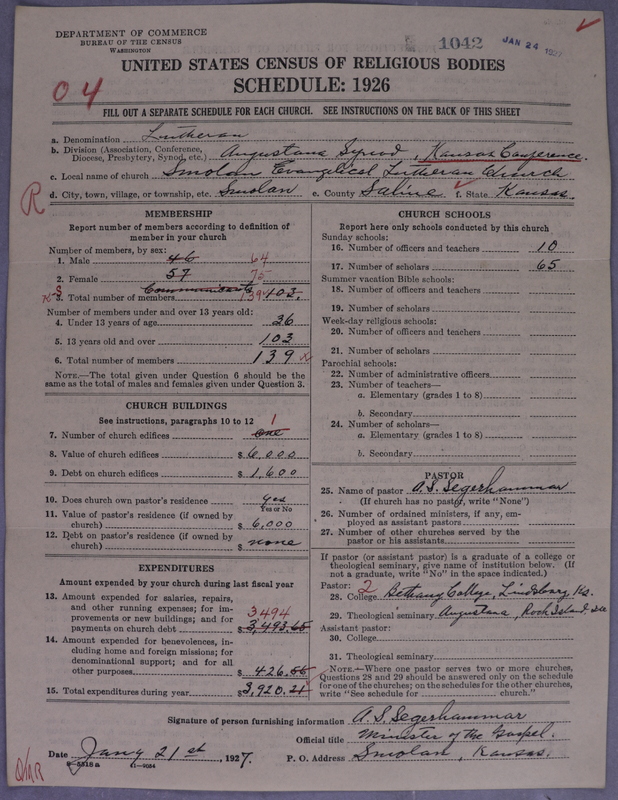 DEPARTMENT OF COMMERCE
BUREAU OF THE CENSUS
WASHINGTON
1042
JAN 24 1927
UNITED STATES CENSUS OF RELIGIOUS BODIES
SCHEDULE: 1926
04
FILL OUT A SEPARATE SCHEDULE FOR EACH CHURCH. SEE INSTRUCTIONS ON THE BACK OF THIS SHEET
a. Denomination Lutheran
b. Division (Association, Conference, Diocese, Presbytery, Synod, etc.) Augustana Synod, Kansas Conference.
c. Local name of church Smolan Evangelical Lutheran Church
d. City, town, village, or township, etc. Smolan e. County Saline f. State Kansas.
R
MEMBERSHIP
Report number of members according to definition of
member in your church
Number of members, by sex:
1. Male 46 64
2. Female 57 75
Communicants
3. Total number of members 139 103.
Number of members under and over 13 years old:
4. Under 13 years of age 36
5. 13 years old and over 103
6. Total number of members 139
NOTE.—The total given under Question 6 should be
same as the total of males and females given under Question 3.
CHURCH BUILDINGS
See instructions, paragraphs 10 to 12
7. Number of church edifices one 1
8. Value of church edifices $ 6,000
9. Debt on church edifices $ 1,600
10. Does church own pastor's residence yes
Yes or No
11. Value of pastor's residence (if owned by
church) $ 6,000
12. Debt on pastor's residence (if owned by
church) $ none
EXPENDITURES
Amount expended by your church during last fiscal year
13. Amount expended for salaries, repairs,
and other running expenses; for im-
provements or new buildings; and for
payments on church debt $ 3,493.65 3494
14. Amount expended for benevolences, in-
cluding home and foreign missions; for
denominational support; and for all
other purposes $ 426.56
15. Total expenditures during year $ 3,920.21
CHURCH SCHOOLS
Report here only schools conducted by this church
Sunday schools:
16. Number of officers and teachers 10
17. Number of scholars 65
Summer vacation Bible schools:
18. Number of officers and teachers
19. Number of scholars
Week-day religious schools:
20. Number of officers and teachers
21. Number of scholars
Parochial schools:
22. Number of administrative officers
23. Number of teachers—
a. Elementary (grades 1 to 8)
b. Secondary
24. Number of scholars—
a. Elementary (grades 1 to 8)
b. Secondary
PASTOR
25. Name of pastor A. S. Segerhammar
(If church has no pastor, write "None")
26. Number of ordained ministers, if any, em-
ployed as assistant pastors
27. Number of other churches served by the
pastor or his assistants
If pastor (or assistant pastor) is a graduate of a college or
theological seminary, give name of institution below. (If
not a graduate, write "No" in the space indicated.)
Pastor: 2
28. College Bethany College, Lindsborg, Ks.
29. Theological seminary Augustana, Rock Island. Ill
Assistant pastor:
30. College
31. Theological seminary
NOTE.—Where one pastor serves two or more churches,
Questions 28 and 29 should be answered only on the schedule
for one of the churches; on the schedules for the other churches,
write "See schedule for church."
Signature of person furnishing information A. S. Segerhammar
Official title Minister of the Gospel.
Date Jany 21st, 1927. P. O. Address Smolan, Kansas.
8-5518 a 11-9034